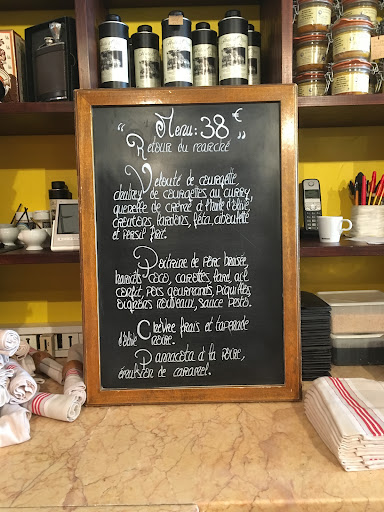 Menu: 38 €
" Retour du marché "
Velouté de courgette
de courgettes au curry,
quenelle de crème à l'huile d'olive,
croutons, lardons, féta, ciboulette
et persil frai.
Poitrine de porc braisée,
haricots coco, carottes, lard, ail
confit, pois gourmands, piquillos,
oignons nouveaux, sauce pesto.
Chèvre frais et tapenade
d'olive noire.
Pannacota à la poire,
émulsion de caramel.